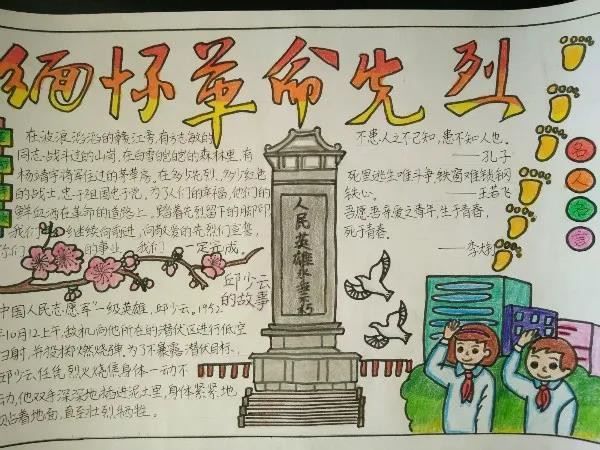 缅怀革命先烈
在波浪滔滔的赣江旁,有方志敏的
同志战斗过的山岗,在白雪皑皑的森林里,有
杨靖宇将军住过的茅草房。在多少先烈,多少红色
的战士,忠于祖国忠于党,为了人们的幸福,他们的
鲜血洒在革命的道路上。踏着先烈留下的脚印
我们继续向前进,向敬爱的先烈们宣誓,
你们的事业,我们一定完成。
邱少云
的故事
中国人民志愿军一级英雄,邱少云。1952
年10月12上午,敌机向他所在的潜伏区进行低空
扫射,并投掷燃烧弹。为了不暴露潜伏目标,
邱少云任凭烈火烧焦身体一动不
动,他双手深深地插进泥土里,身体紧紧地
贴着地面,直至壮烈牺牲。
人民英雄永垂不朽
不患人之不己知,患不知人也。
——孔子
死里逃生唯斗争,铁窗难锁钢
铁心。——王若飞
吾愿吾亲爱之青年,生于青春,
死于青春。
——李大钊
名人名言